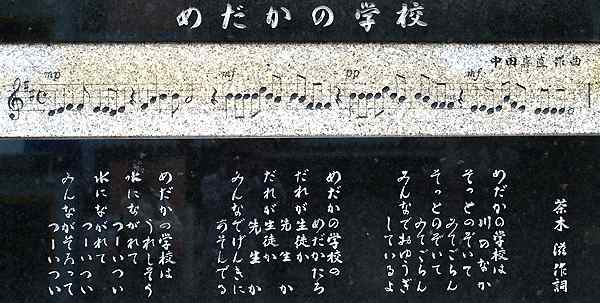 めだかの学校
中田喜直 作曲
mp
mf
pp
mf
茶木 滋 作詞
めだかの学校は
川のなか
そっとのぞいて
みてごらん
そっとのぞいて
みてごらん
みんなでおゆうぎ
しているよ
めだかの学校の
めだかたち
だれが生徒か
先生か
だれが生徒か
先生か
みんなでげんきに
あそんでる
めだかの学校は
うれしそう
水にながれて
つーいつい
水にながれて
つーいつい
みんながそろって
つーいつい